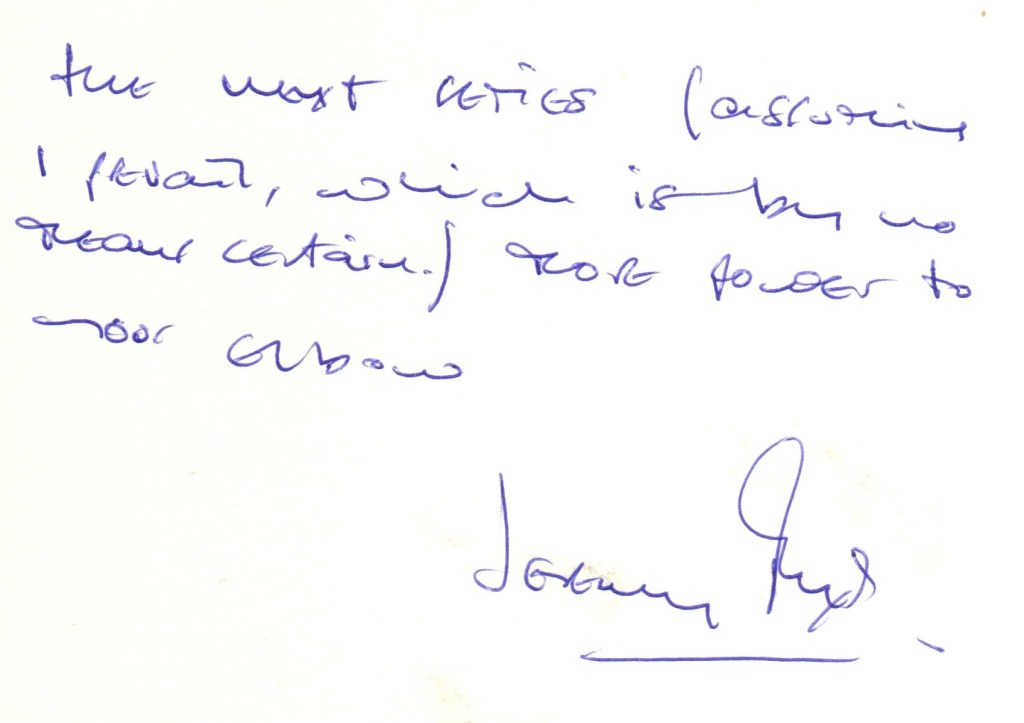 the next series (assuming
I prevail, which is by no
means certain.) More power to
your elbow
Jeremy